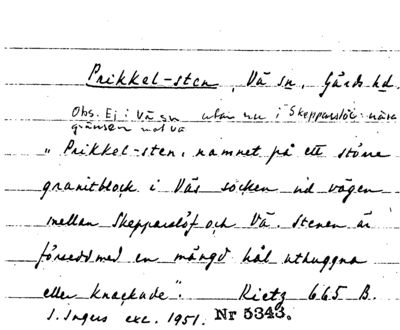 Prikkel-sten, Vä sn, Gärds hd.
Obs. Ej i Vä sn utan nu i Skepparslöv nära
gränsen mot Vä
"Prikkel-sten, namnet på ett större
granitblock i Väs socken vid vägen
mellan Skepparslöf och Vä. Stenen är
försedd med en mängd hål uthuggna
eller knackade". Rietz 665 B.
I. Ingers exc. 1951. Nr 5343.